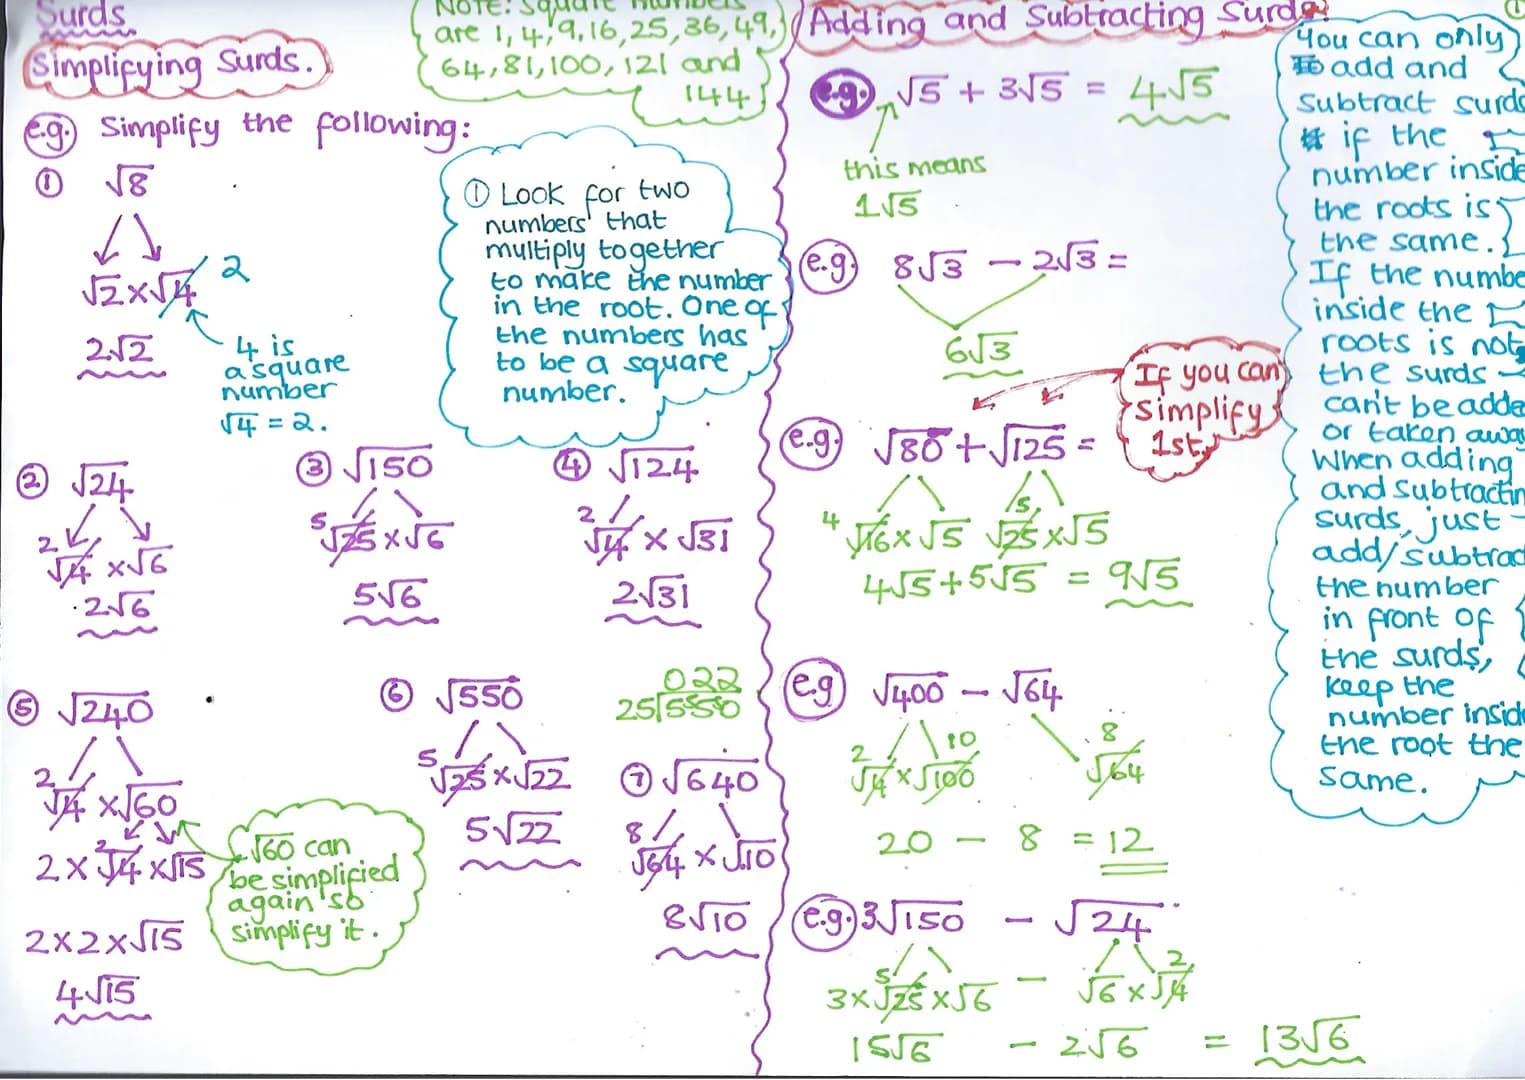 Surds
Simplifying Surds.
NOTE: Square numbers
are 1, 4, 9, 16, 25, 36, 49,
64, 81, 100, 121 and
144
e.g. Simplify the following:
① √8
√2 × √4 2
2√2
4 is
a square
number
√4 = 2.
① Look for two
numbers that
multiply together
to make the number
in the root. One of
the numbers has
to be a square
number.
② √24
2 √4 × √6
2√6
③ √150
5 √25 × √6
5√6
④ √124
2 √4 × √31
2√31
⑤ √240
2 √4 × √60
2 × 2 √4 × √15
2 × 2 × √15
4√15
√60 can
be simplified
again so
simplify it.
⑥ √550
5 √25 × √22
5√22
022
25 550
⑦ √640
8 √64 × √10
8√10
Adding and Subtracting Surds.
e.g. √5 + 3√5 = 4√5
this means
1√5
e.g. 8√3 − 2√3 =
6√3
If you can
simplify
1st.
e.g. √80 + √125 =
4 √16 × √5 5 √25 × √5
4√5 + 5√5 = 9√5
e.g √400 − √64
2 √4 × √100 10 8 √64
20 − 8 = 12
e.g. 3√150 − √24
3 × 5 √25 × √6 − √6 × √4 2
15√6 − 2√6 = 13√6
You can only
add and
subtract surds
if the
number inside
the roots is
the same.
If the numbe
inside the
roots is not,
the surds
can't be adde
or taken away
When adding
and subtractin
surds, just
add/subtrac
the number
in front of
the surds,
keep the
number insid
the root the
same.